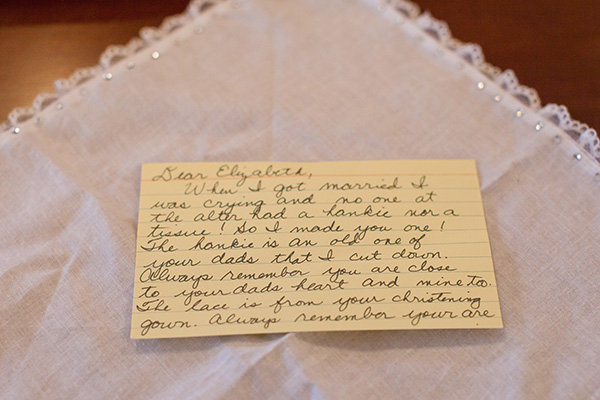 Dear Elizabeth,
When I got married I
was crying and no one at
the alter had a hankie nor a
tissue! So I made you one!
The hankie is an old one of
your dads that I cut down.
Always remember you are close
to your dads heart and mine too.
The lace is from your christening
gown. Always remember your are